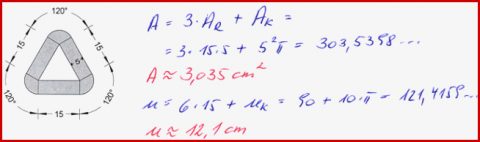 120°
15
15
5
120°
15
120°
A = 3·A_R + A_K =
= 3·15·5 + 5²π = 303,5398...
A ≈ 3,035 cm²
u = 6·15 + u_K = 90 + 10·π = 121,4159...
u ≈ 12,1 cm